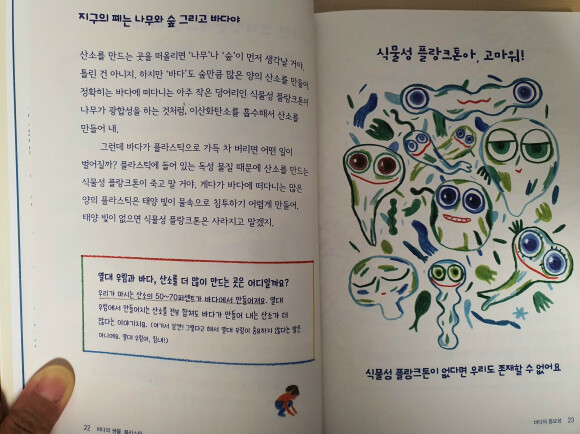 지구의 폐는 나무와 숲 그리고 바다야
산소를 만드는 곳을 떠올리면 '나무'나 '숲'이 먼저 생각날 거야.
틀린 건 아니지. 하지만 '바다'도 숲만큼 많은 양의 산소를 만들어.
정확히는 바다에 떠다니는 아주 작은 덩어리인 식물성 플랑크톤이
나무가 광합성을 하는 것처럼, 이산화탄소를 흡수해서 산소를
만들어 내.
그런데 바다가 플라스틱으로 가득 차 버리면 어떤 일이
벌어질까? 플라스틱에 들어 있는 독성 물질 때문에 산소를 만드는
식물성 플랑크톤이 죽고 말 거야. 게다가 바다에 떠다니는 많은
양의 플라스틱은 태양 빛이 물속으로 침투하기 어렵게 만들어.
태양 빛이 없으면 식물성 플랑크톤은 사라지고 말겠지.
열대 우림과 바다, 산소를 더 많이 만드는 곳은 어디일까요?
우리가 마시는 산소의 50~70퍼센트가 바다에서 만들어져요. 열대
우림에서 만들어지는 산소를 전부 합쳐도 바다가 만들어 내는 산소가 더
많다는 이야기지요. (여기서 잠깐! 그렇다고 해서 열대 우림이 중요하지 않다는 말은
아니에요. 열대 우림아, 힘내!)
22 바다의 생물, 플라스틱
식물성 플랑크톤아, 고마워!
식물성 플랑크톤이 없다면 우리도 존재할 수 없어요
바다의 중요성 23